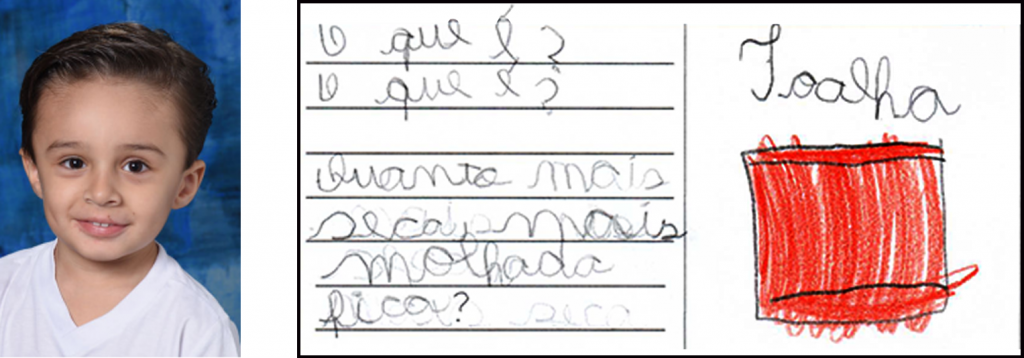 O que é?
O que é?
Quanto mais
seca, mais
molhada
fica?
Toalha